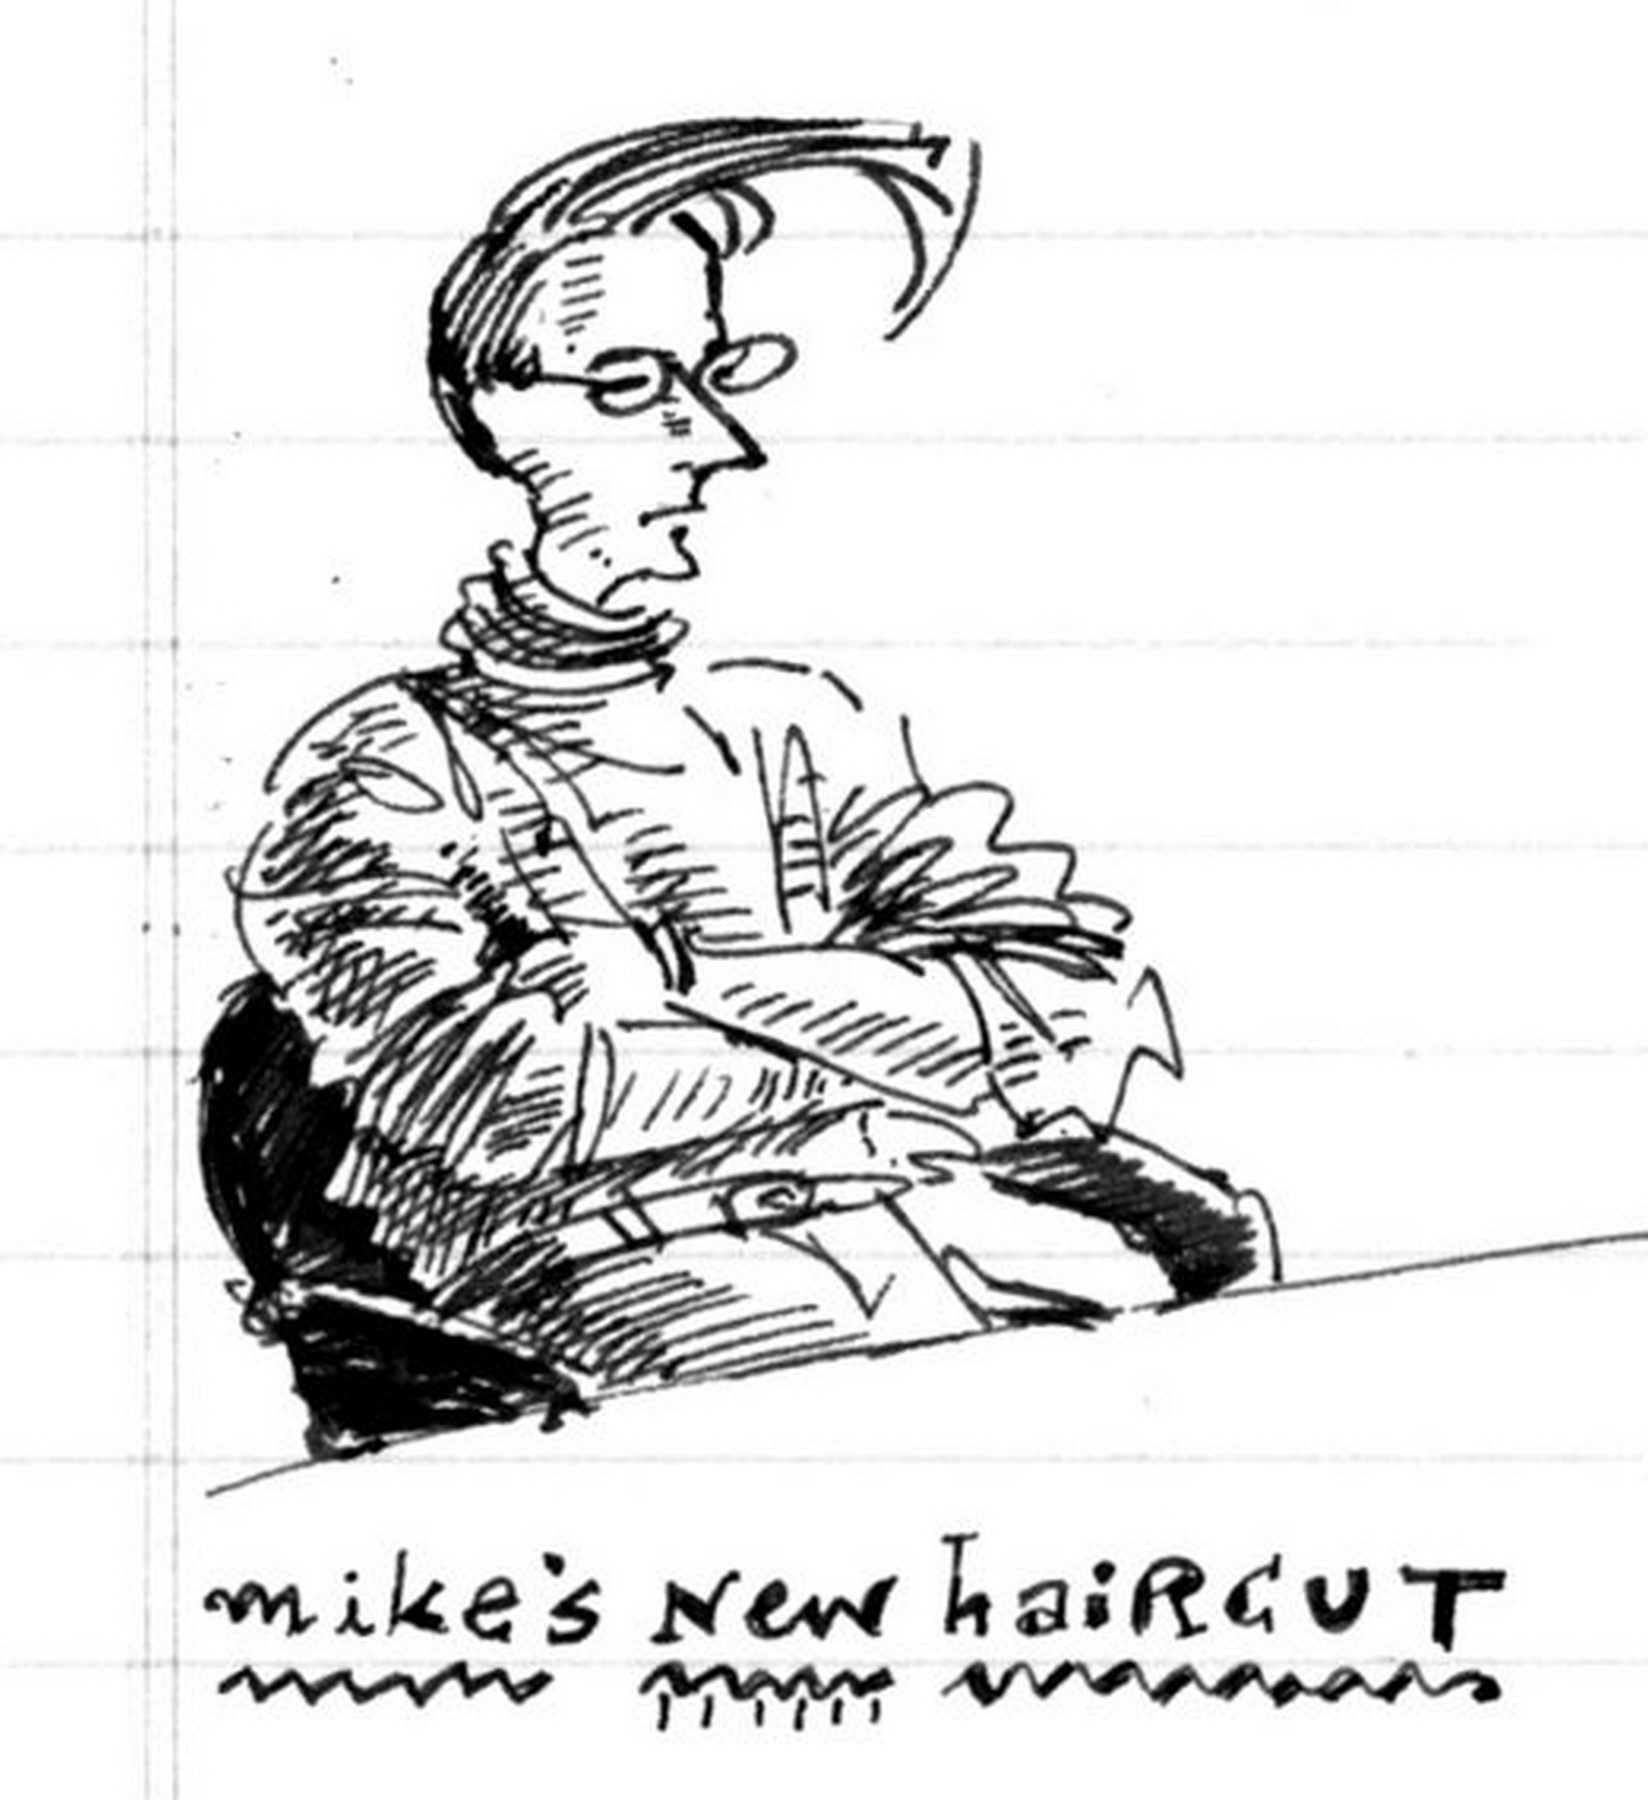 mike's New haiRCUT